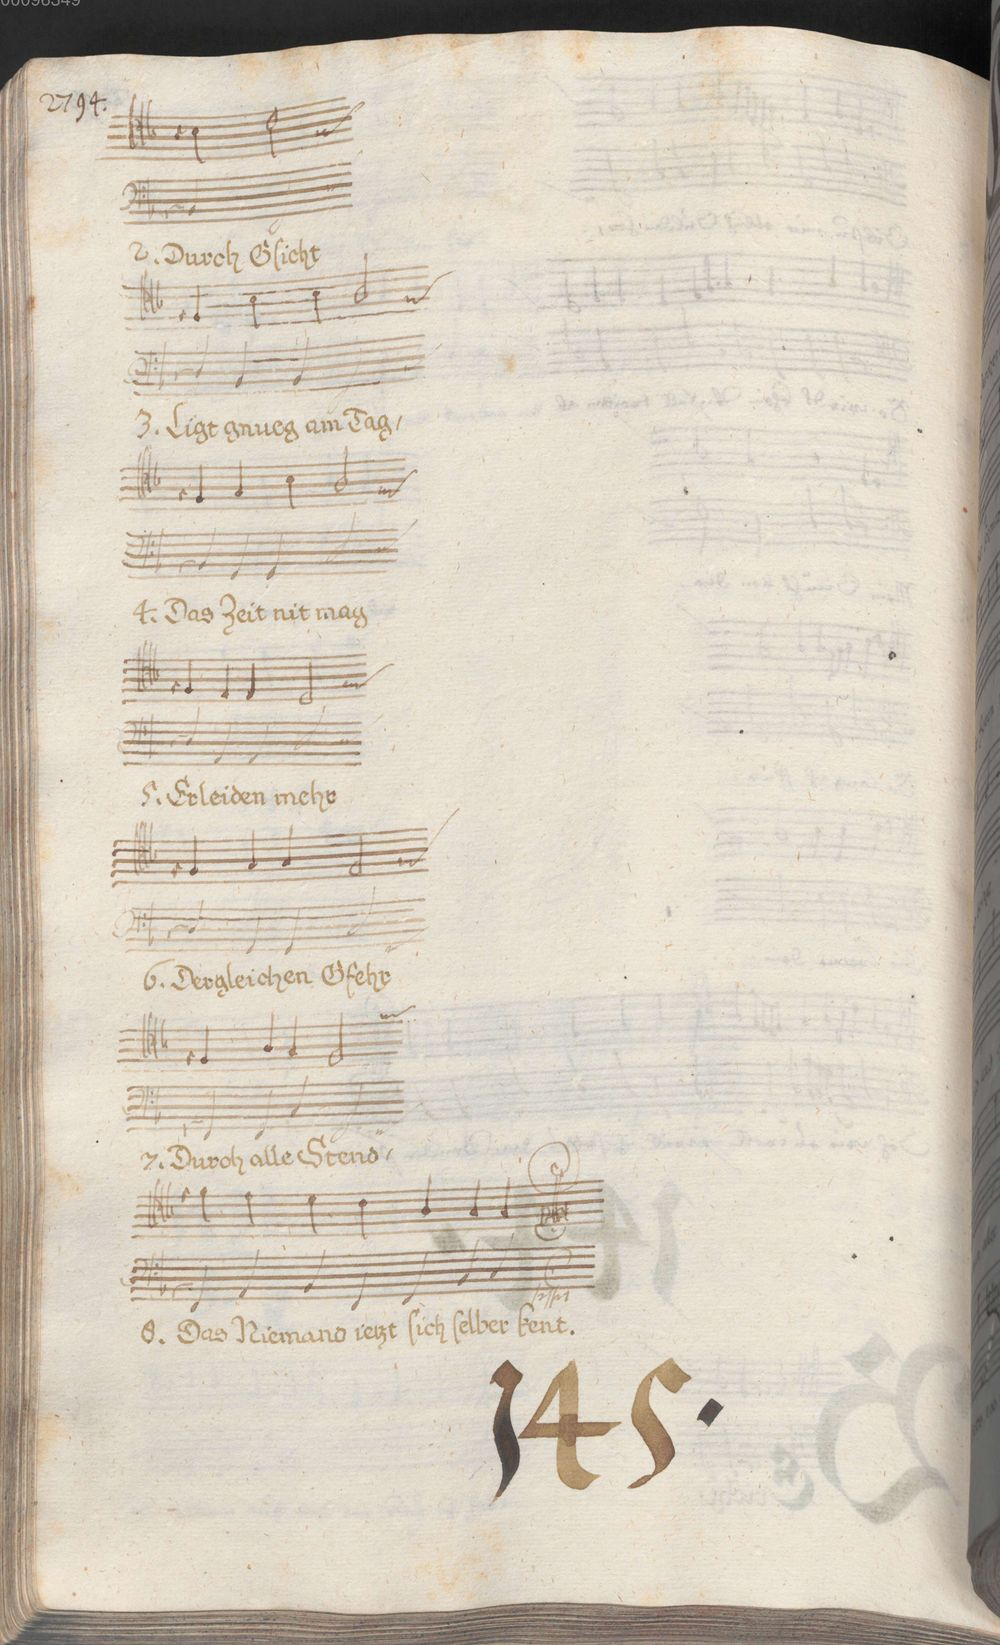 00096349
2794.
2. Durch Gsicht
3. Ligt gnueg am Tag/
4. Das Zeit nit mag
5. Erleiden mehr
6. Dergleichen Gfehr
7. Durch alle Stend/
8. Das Niemand ietzt sich selber kent.
145.